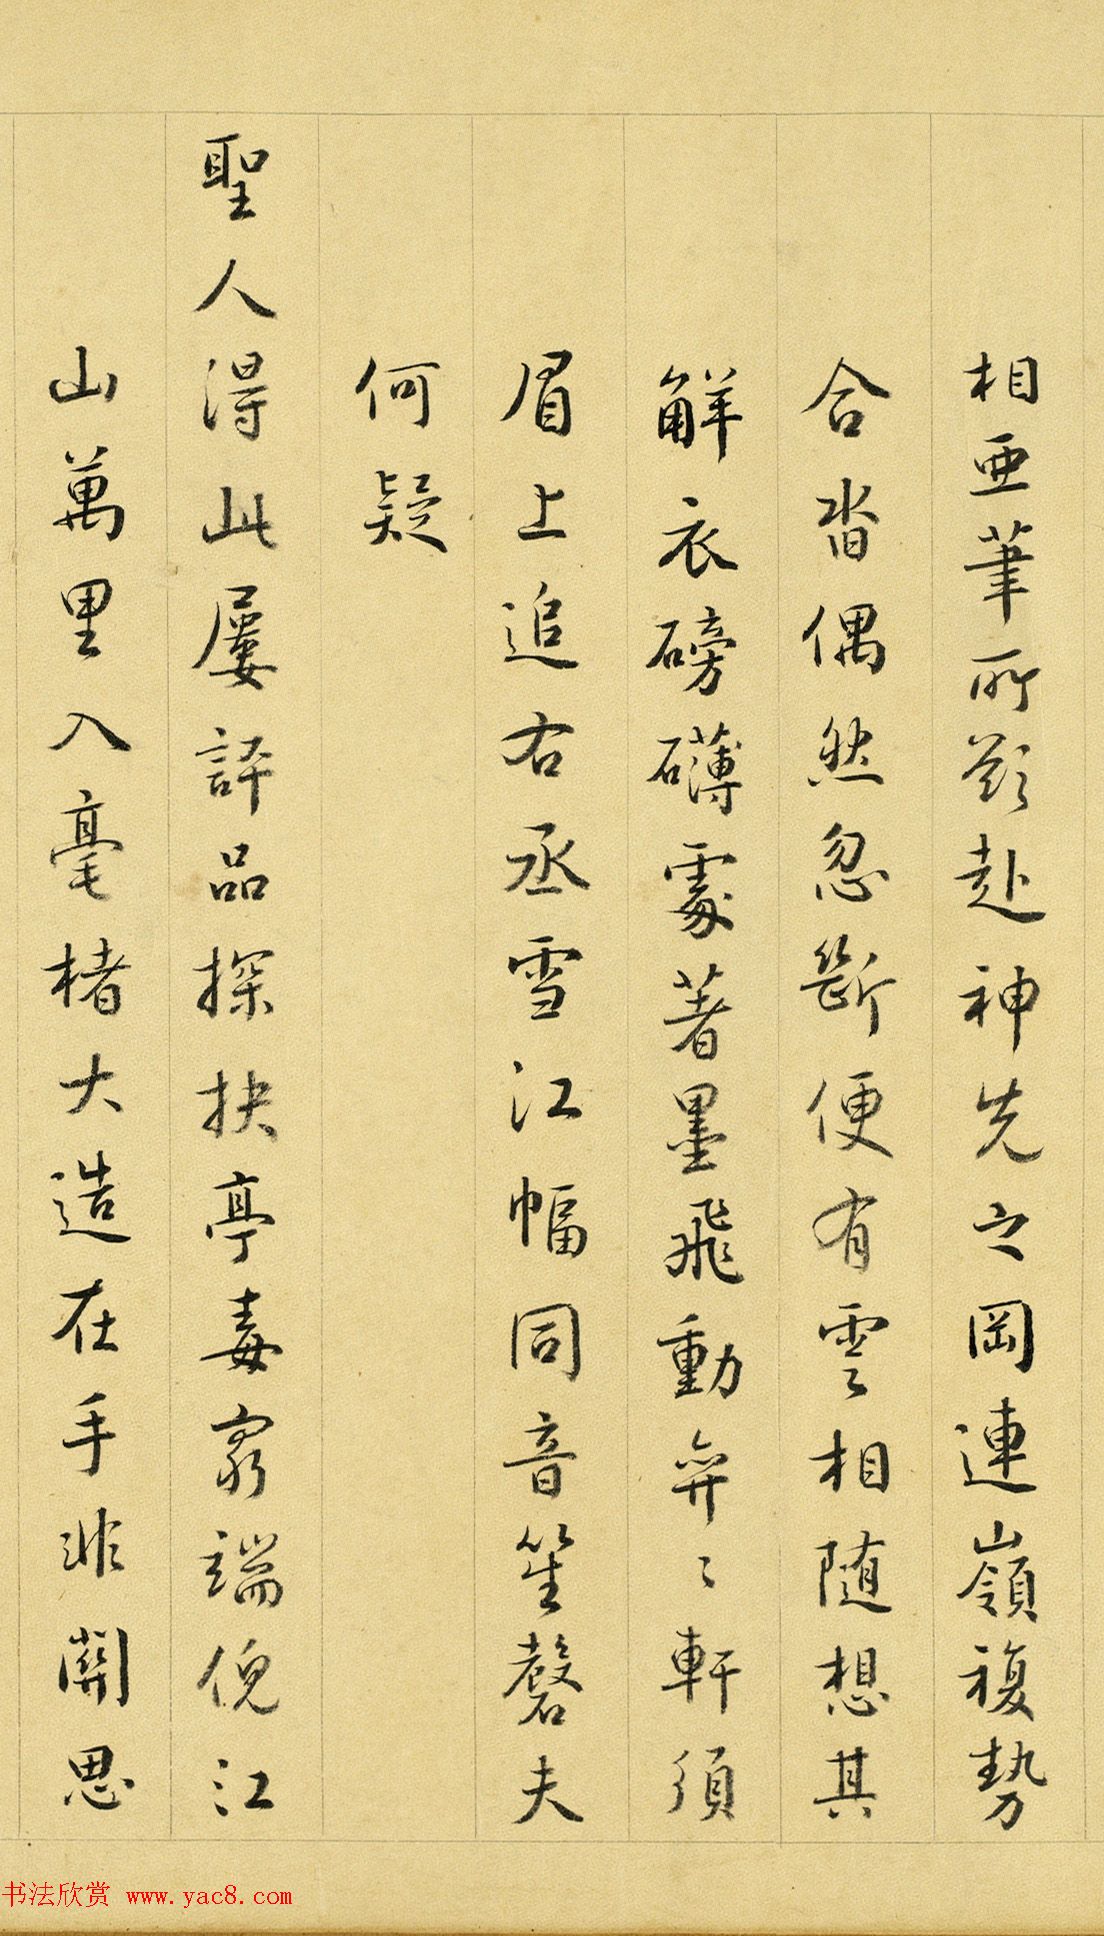 相亞筆所欲赴神先之岡連嶺複勢
合沓偶然忽斷便有雲〻相随想其
解衣磅礴處著墨飛動弈〻軒須
眉上追右丞雪江幅同音笙磬夫
何疑
聖人得此屢評品探抉亭毒窮端倪江
山萬里入毫楮大造在手非關思
书法欣赏 www.yac8.com